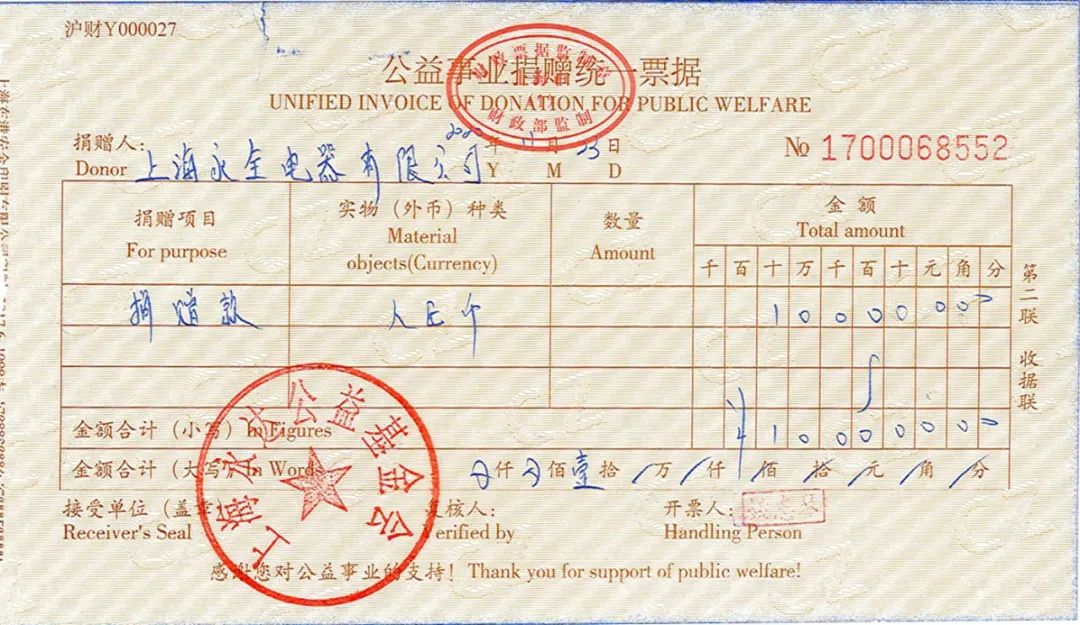 沪财Y000027
公益事业捐赠统一票据
UNIFIED INVOICE OF DONATION FOR PUBLIC WELFARE
财政部监制
捐赠人：
Donor 上海永全电器有限公司
2020年11月23日
Y M D
№ 1700068552
捐赠项目
For purpose
实物（外币）种类
Material
objects(Currency)
数量
Amount
金额
Total amount
千 百 十 万 千 百 十 元 角 分
捐赠款 人民币 1 0 0 0 0 0 0 0
金额合计（小写）In Figures ¥ 1 0 0 0 0 0 0 0
金额合计（大写）In Words 仟 佰 壹 拾 万 仟 佰 拾 元 角 分
接受单位（盖章）
Receiver's Seal
复核人：
Verified by
开票人：
Handling Person
感谢您对公益事业的支持！Thank you for support of public welfare!
第二联
收据联
公益基金会